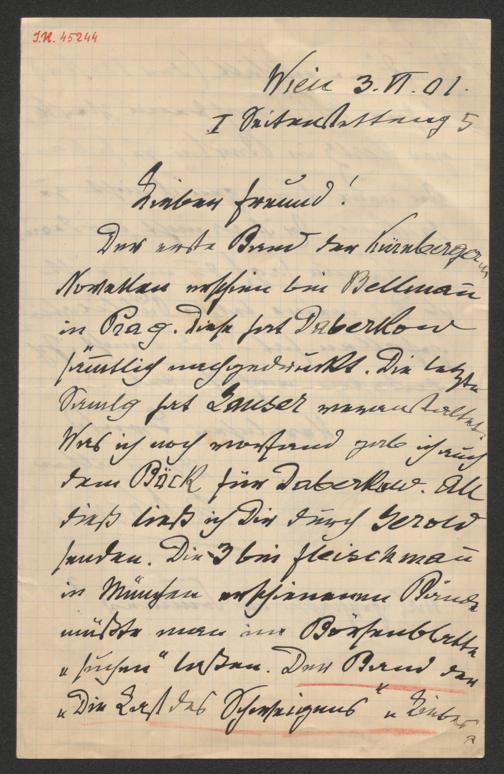 I.N. 45244
Wien 3. VI. 01.
I Seitenstetteng 5
Lieber Freund!
Der erste Band der Kürnberger
Novellen erschien bei Bellmann
in Prag. Diese hat Daberkow
sämtlich nachgedruckt. Die letzte
Samlg hat Lauser veranstaltet.
Was ich noch vorfand gab ich auch
dem Böck für Daberkow. All
dieß ließ ich Dir durch Gerold
senden. Die 3 bei Fleischmann
in München erschienenen Bände
müßte man im Börsenblatte
„suchen" laßen. Der Band der
„Die Last des Schweigens" u Lieber